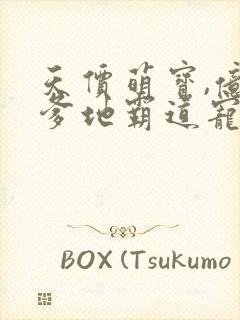 天價萌寶,億
爹地霸道寵
BOX (Tsukumo